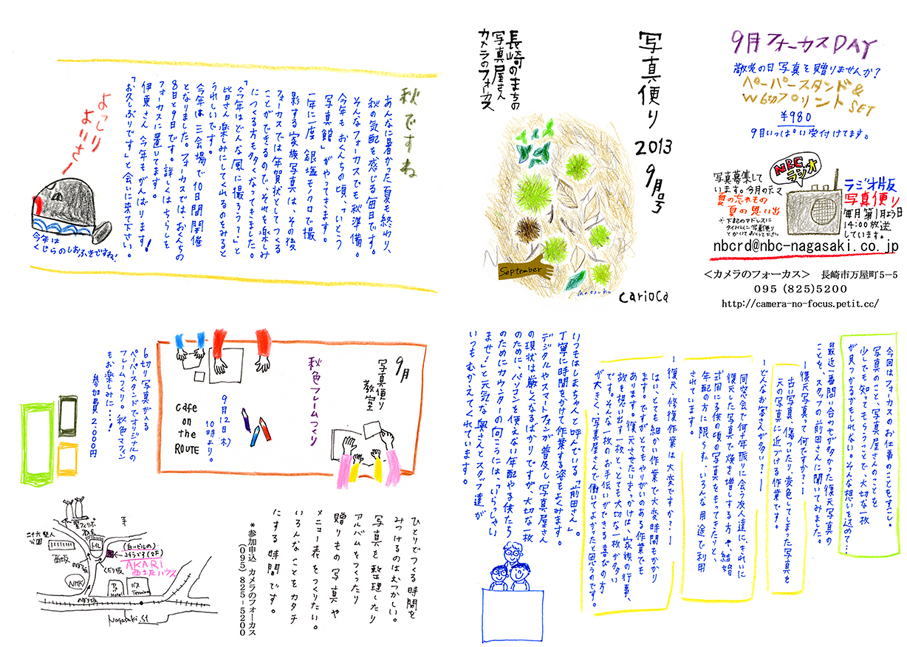 写真便り
2013
9月号
長崎のまちの
写真屋さん
カメラのフォーカス
September
carioca
9月フォーカスDAY
敬老の日 写真を贈りませんか?
ペーパースタンド&
W6切プリント SET
¥980
9月いっぱい受付けてます。
NBC
ラジオ
写真募集して
います。今月のテーマ
夏の忘れもの
夏の思い出
ラジオ版
写真便り
14:00放送
しています。
nbcrd@nbc-nagasaki.co.jp
<カメラのフォーカス> 長崎市万屋町5−5
095 (825)5200
http://camera-no-focus.petit.cc/
秋ですね
あんなに暑かった夏も終わり、
秋の気配を感じる毎日です。
そんなフォーカスでも秋準備。
今年もおくんちの頃、「いとう
写真館」がやってきます。
一年に一度、銀塩モノクロで撮
影する家族写真は、その後、
フォーカスでは年賀状としてつくる
こともできるので、それを楽しみ
につくる方も多くなってきました。
「今年はどんな風に撮ろう…」と
皆さん楽しみにして下さるのをみると
うれしいです。
今年は三会場で10日間開催
となりました。フォーカスではおくんちの
8日と9日です。詳しくはちらしを
フォーカスに置いてます。
伊東さん、今年もがんばります!
「お久しぶりです」と会いに来て下さい。
よっしり
よいさー
今年は
くじらのしおふきですね!
9月
写真便り
教室
秋色フレームつくり
9月12日(木)
10時より。
cafe
on
the
ROUTE
6切の写真が入る
ペーパースタンドでオリジナルの
フレームつくり。秋色マフィン
もお楽しみに…!
参加費 2,000円
AKARI
NHK
Nagasaki.St
ひとりでつくる時間を
みつけるのはむつかしい。
写真を整理したり
アルバムをつくったり
贈りもの写真や
メニュー表をつくりたい。
いろんなことをカタチ
にする時間です。
*参加申込 カメラのフォーカス
(095) 825-5200
今回はフォーカスのお仕事のことをすこし。
写真のこと、写真屋さんのことを
少しでも知ってもらうことで、大切な一枚
が見つかるかもしれない。そんな想いを込めて…
最近一番問い合わせが多かった復元写真の
ことを、スタッフの前田さんに聞いてみました。
ー復元写真って何ですか?ー
古い写真、傷ついたり、変色してしまった写真を
元の写真に近づける作業です。
ーどんなお客さんが多い?ー
同窓会で何十年振りに会う友人達に、きれいに
復元した写真で焼き増しする方や、結婚
式用に子供の頃の写真をもってきたり…と
年配の方に限らず、いろんな用途で利用
されています。
ー復元・修復作業は大変ですか?ー
はい、とっても細かい作業で、大変時間もかかり
ますが…とてもやりがいのある作業でも
あります。復元させたいものには…家族の行事、
故人を想い出す一枚…と、とても大切な一枚が多い
です。そんな一枚のお手伝いができて、喜びの声
が大きく、写真屋さんで働いててよかったと思うのです。
いつもは「まえちゃん」と呼んでいる「前田さん」。
丁寧に時間をかけて作業する姿をよくみます。
デジタルやスマートフォンが普及し、写真屋さん
の現状は厳しくなるばかりですが、大切な一枚
のために、パソコンを使えない年配や子供たち
のためにカウンターの向こうには、「いらっしゃい
ませ!」と元気な奥さんとスタッフ達が
いつもむかえてくれています。